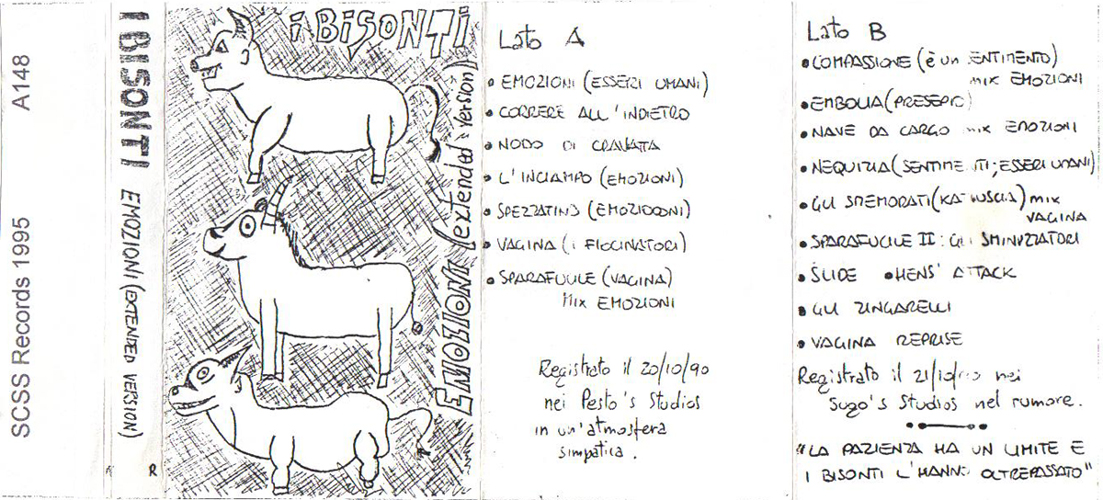 SCSS Records 1995 A148
I BISONTI EMOZIONI (EXTENDED VERSION)
R
i BiSONTi
EMOZIONI (extended version)
Lato A
• EMOZIONI (ESSERI UMANI)
• CORRERE ALL'INDIETRO
• NODO DI CRAVATTA
• L'INCIAMPO (EMOZIONI)
• SPEZZATINO (EMOZIOOONI)
• VAGINA (I FIOCINATORI)
• SPARAFUCILE (VAGINA)
MIX EMOZIONI
Registrato il 20/10/90
nei Pesto's Studios
in un'atmosfera
simpatica.
Lato B
• COMPASSIONE (è UN SENTIMENTO)
MIX EMOZIONI
• EMBOLIA (PRESEPIO)
• NAVE DA CARGO MIX EMOZIONI
• NEQUIZIA (SENTIMENTI; ESSERI UMANI)
• GLI SMEMORATI (KATIUSCIA) MIX
VAGINA
• SPARAFUCILE II: GLI SMINUZZATORI
• SLIDE • HENS' ATTACK
• GLI ZINGARELLI
• VAGINA REPRISE
Registrato il nei
Sugo's Studios nel rumore.
"LA PAZIENZA HA UN LIMITE E
I BISONTI L'HANNO OLTREPASSATO"